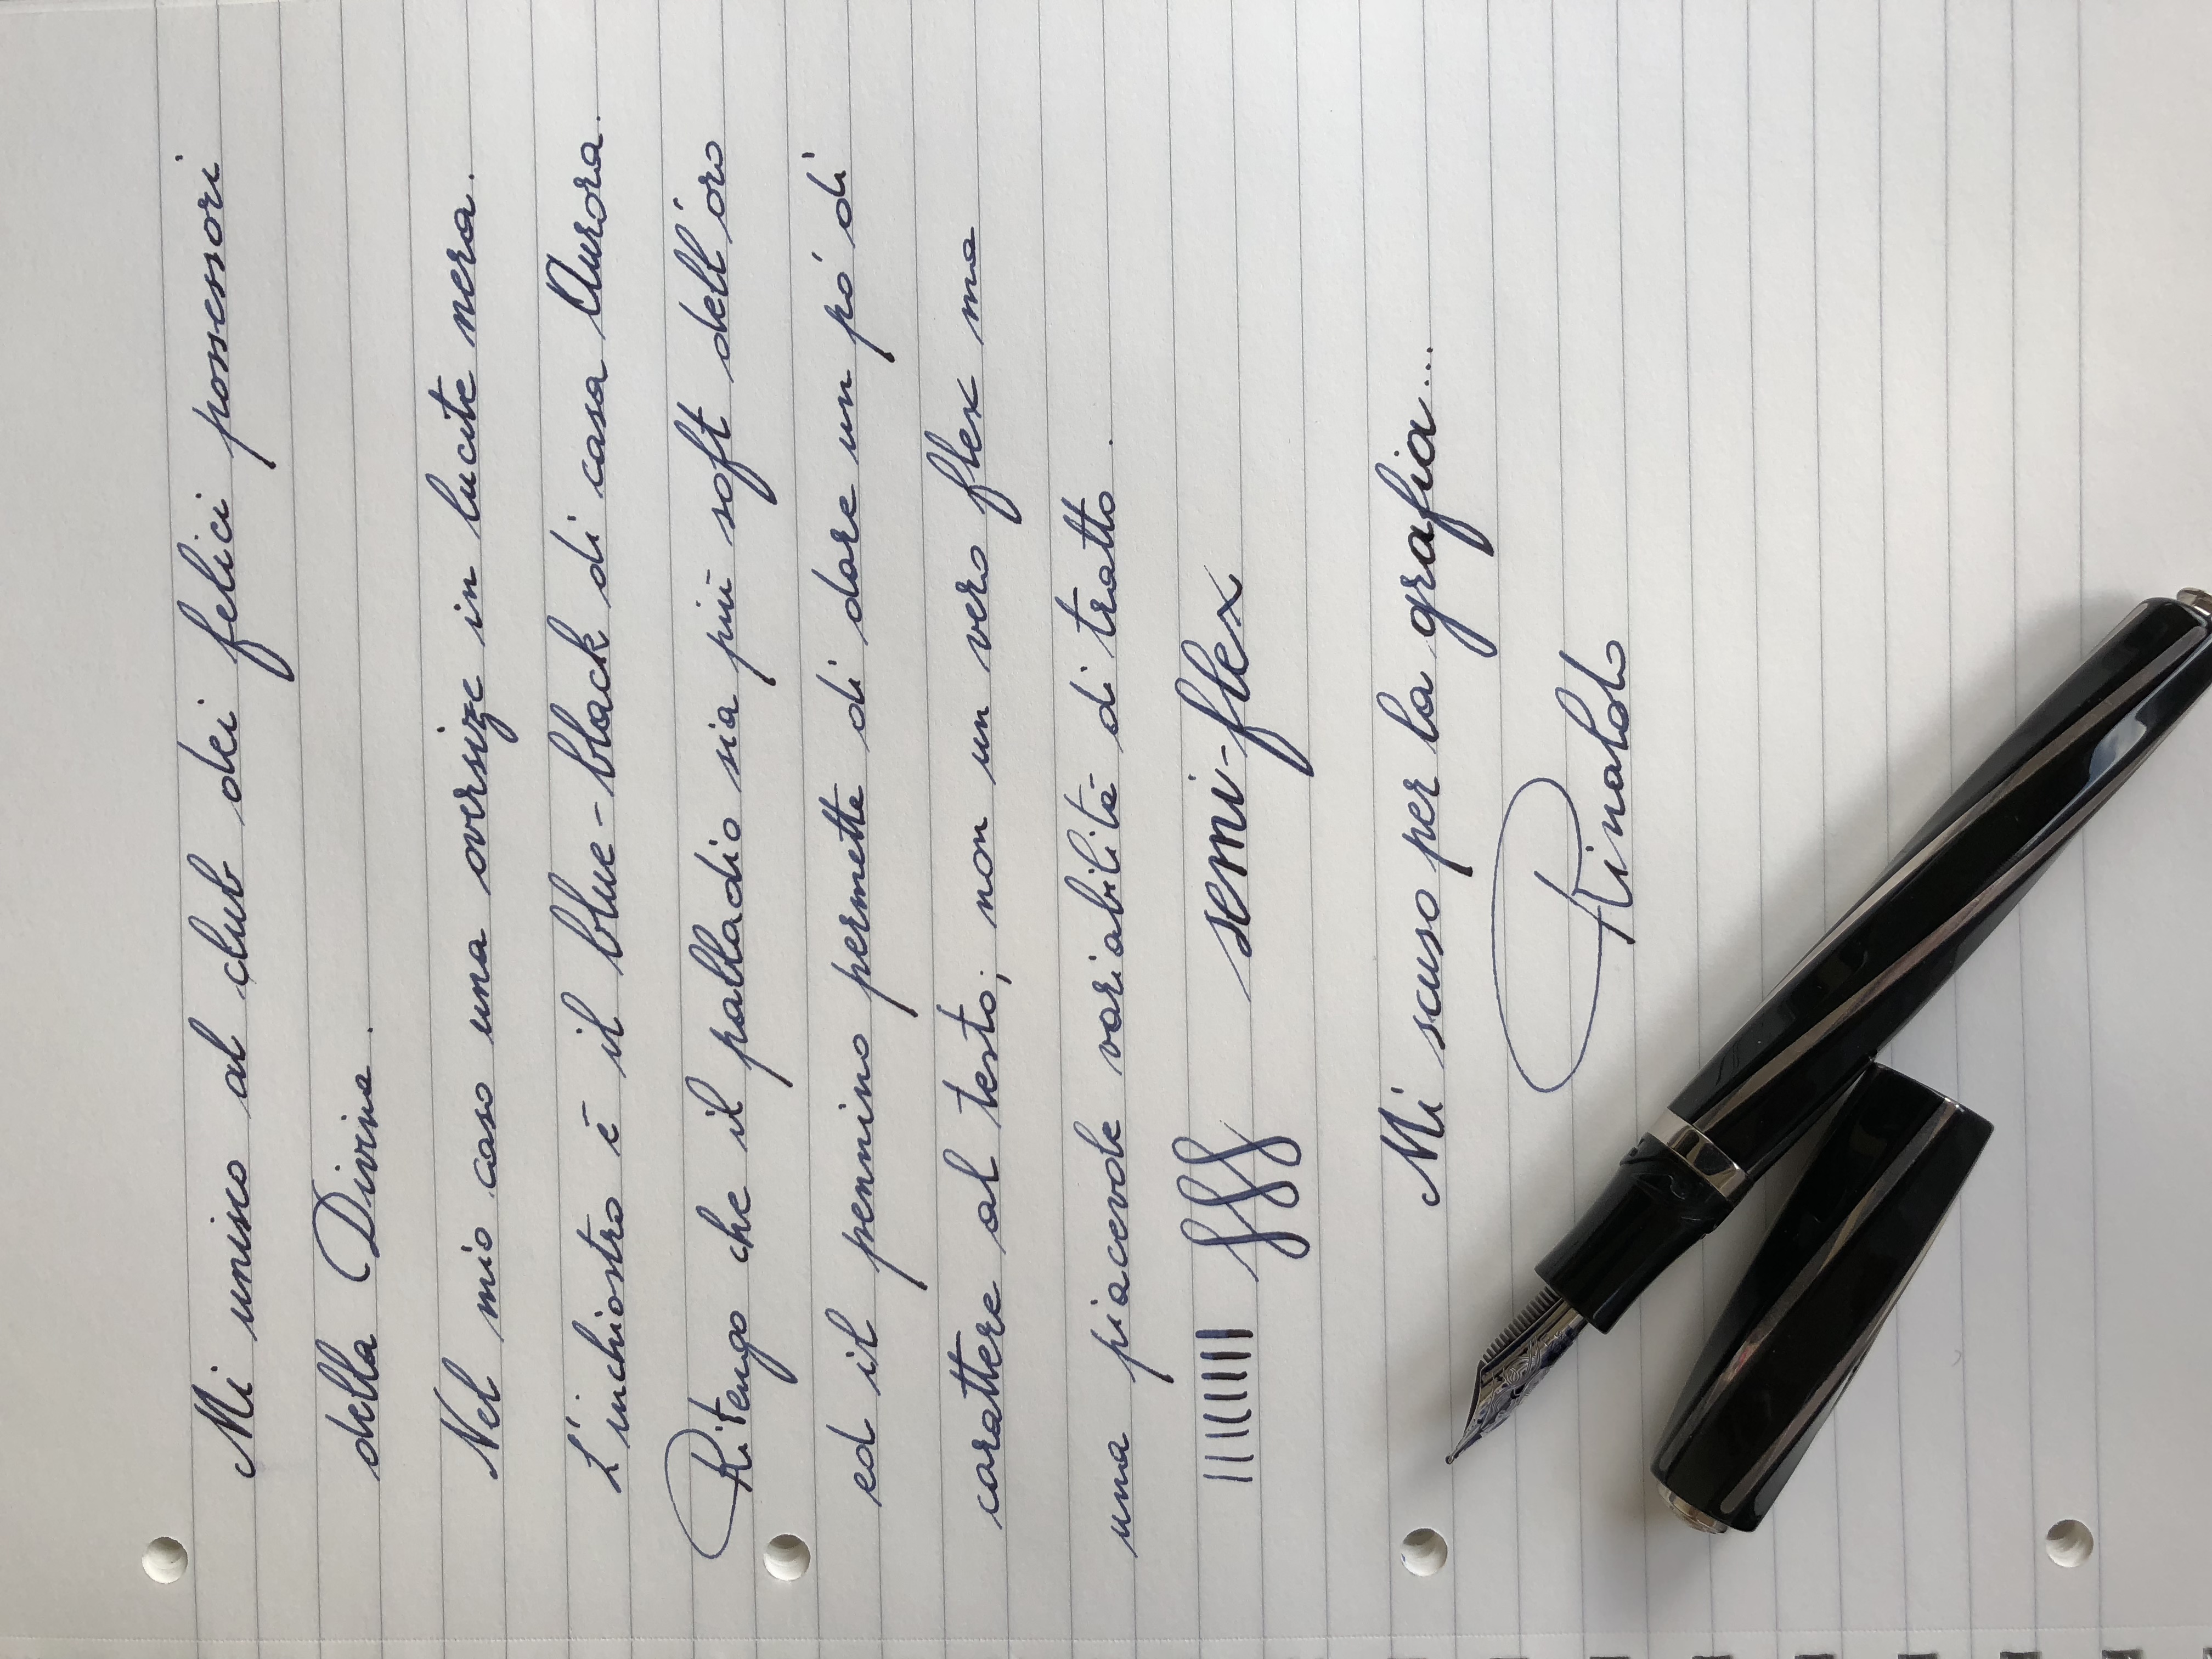 Mi unisco al club dei felici possessori
della Divina.
Nel mio caso una oversize in lucite nera.
L'inchiostro è il blue-black di casa Aurora.
Ritengo che il palladio sia più soft dell'oro
ed il pennino permette di dare un pó di
carattere al testo; non un vero flex ma
una piacevole variabilità di tratto.
semi-flex
Mi scuso per la grafia...
Rinaldo